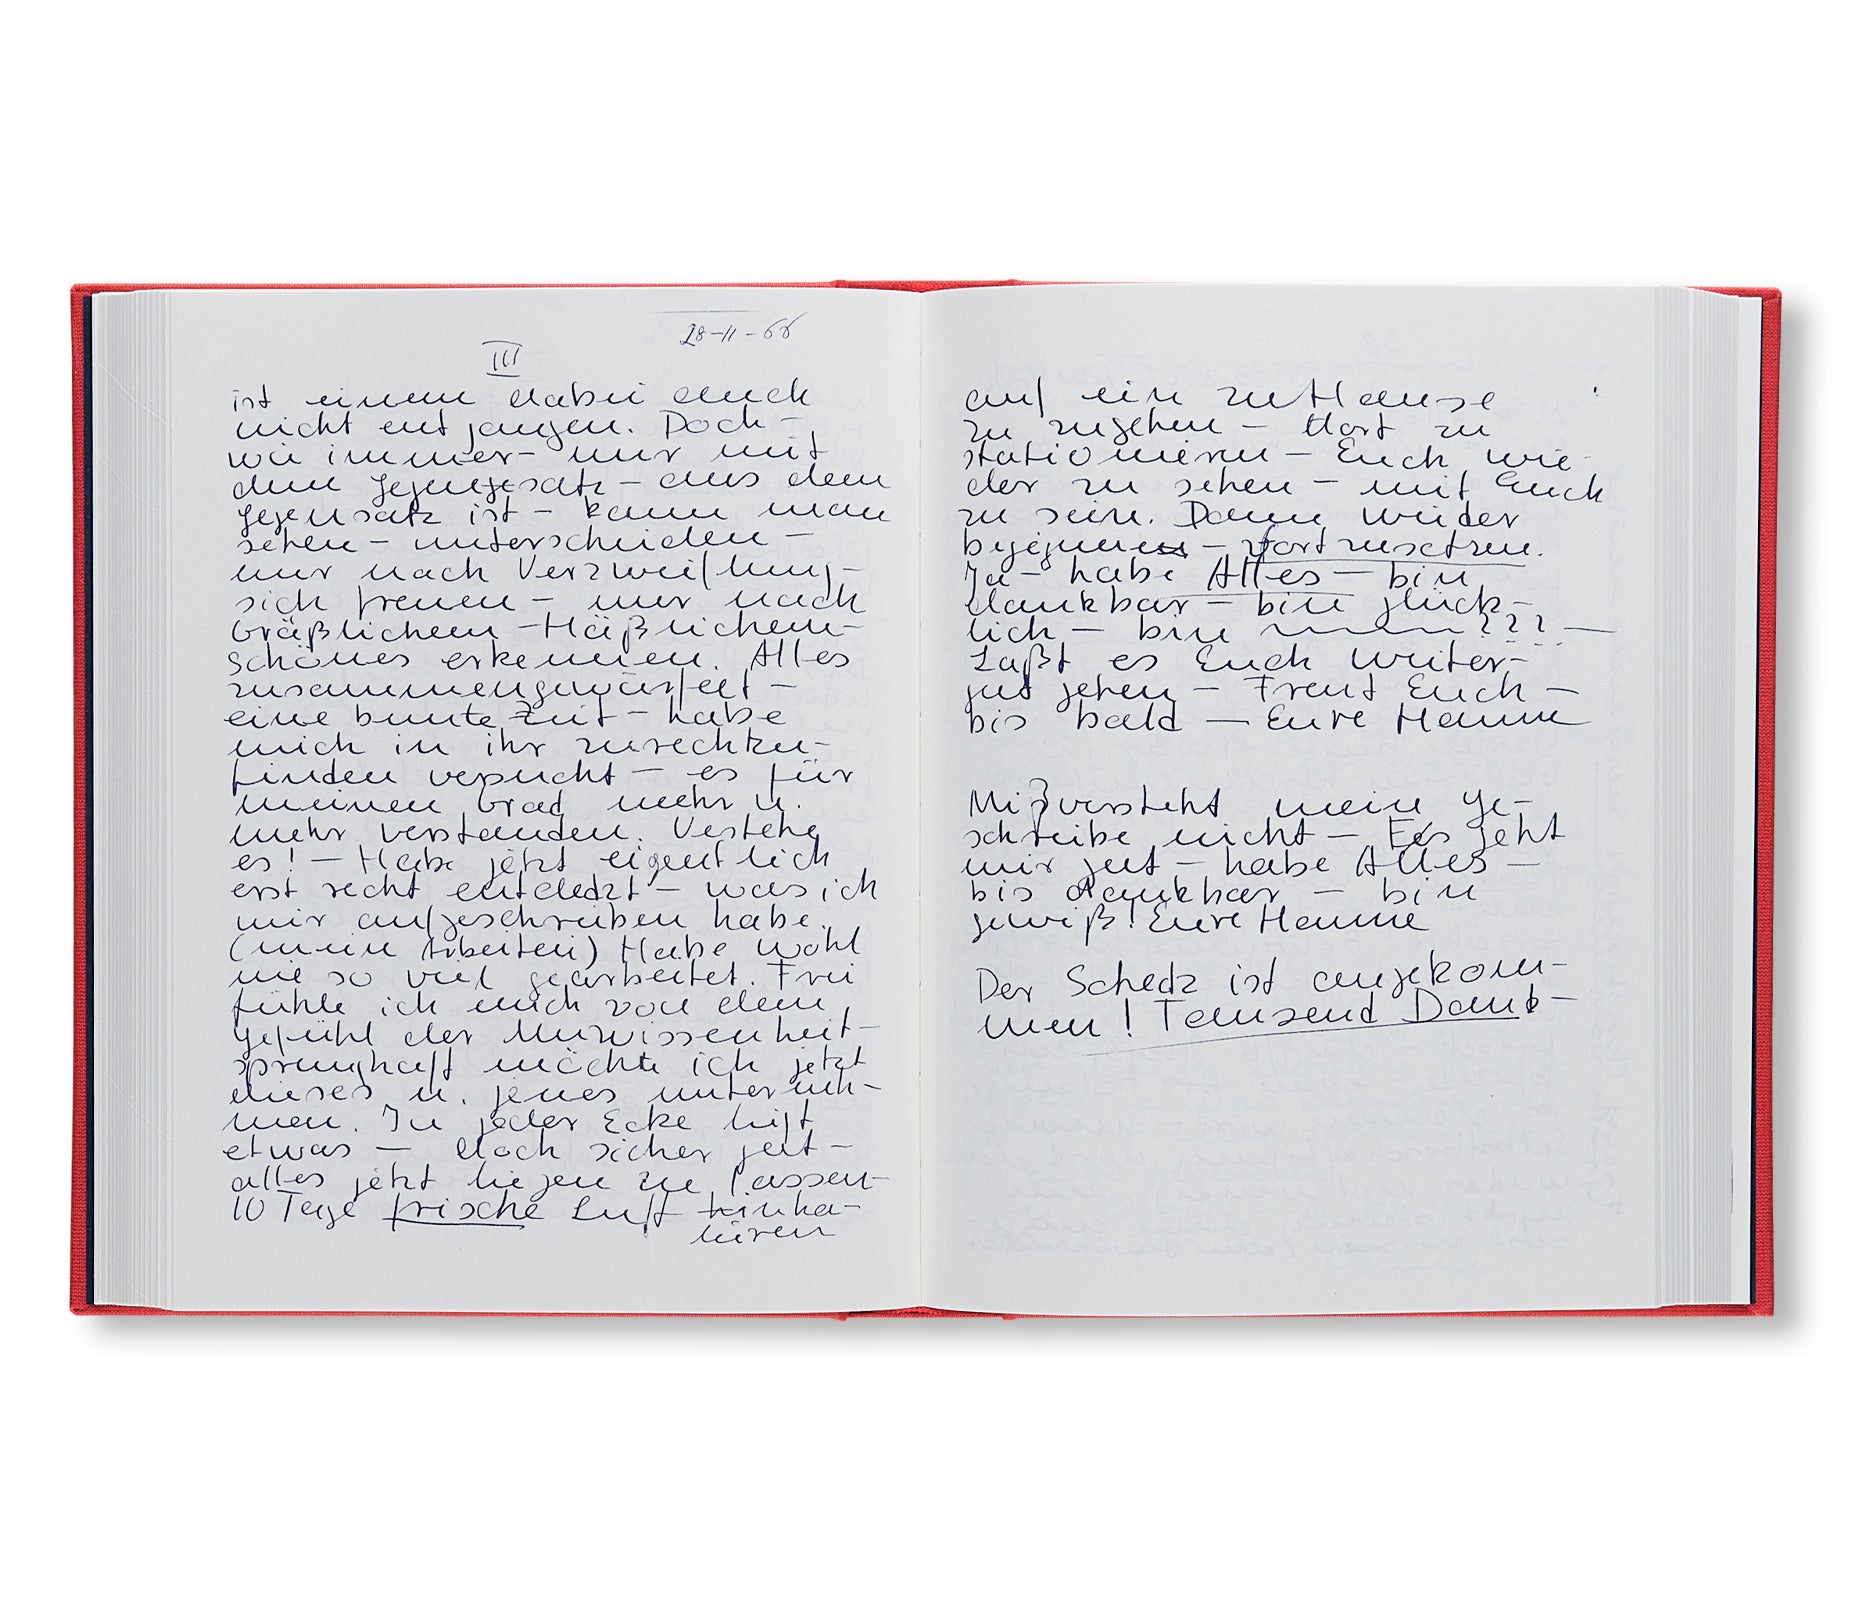 28-11-66
III
ist einem dabei auch
nicht entgangen. Doch -
wie immer - nur mit
dem Gegengesatz - aus dem
Gegensatz ist - kann man
sehen - unterscheiden -
nur nach Verzweiflung -
sich freuen - nur nach
Gräßlichem - Häßlichem -
Schönes erkennen. Alles
zusammengewürfelt -
eine bunte Zeit - habe
mich in ihr zurechtzu-
finden versucht - es für
meinen Grad mehr u.
mehr verstanden. Verstehe
es! - Habe jetzt eigentlich
erst recht entdeckt - was ich
mir aufgeschrieben habe.
(mein Arbeiten) Habe wohl
nie so viel gearbeitet. Frei
fühle ich mich von dem
Gefühl der Unwissenheit -
sprunghaft möchte ich jetzt
dieses u. jenes unterneh-
men. In jeder Ecke liegt
etwas - doch sicher gut -
alles jetzt liegen zu lassen -
10 Tage frische Luft inha-
lieren
auf ein zuHause
zu zugehen - dort zu
stationieren - Euch wie-
der zu sehen - mit Euch
zu sein. Dann wieder
beginnen - fortzusetzen.
Ja - habe Alles - bin
dankbar - bin glück-
lich - bin ??? -
Laßt es Euch weiter -
gut gehen - Freut Euch -
bis bald - Eure Hanne
Mißversteht mein Ge-
schreibe nicht - Es geht
mir gut - habe Alles -
bis dankbar - bin
gewiß! Eure Hanne
Der Scheck ist angekom-
men! Tausend Dank -